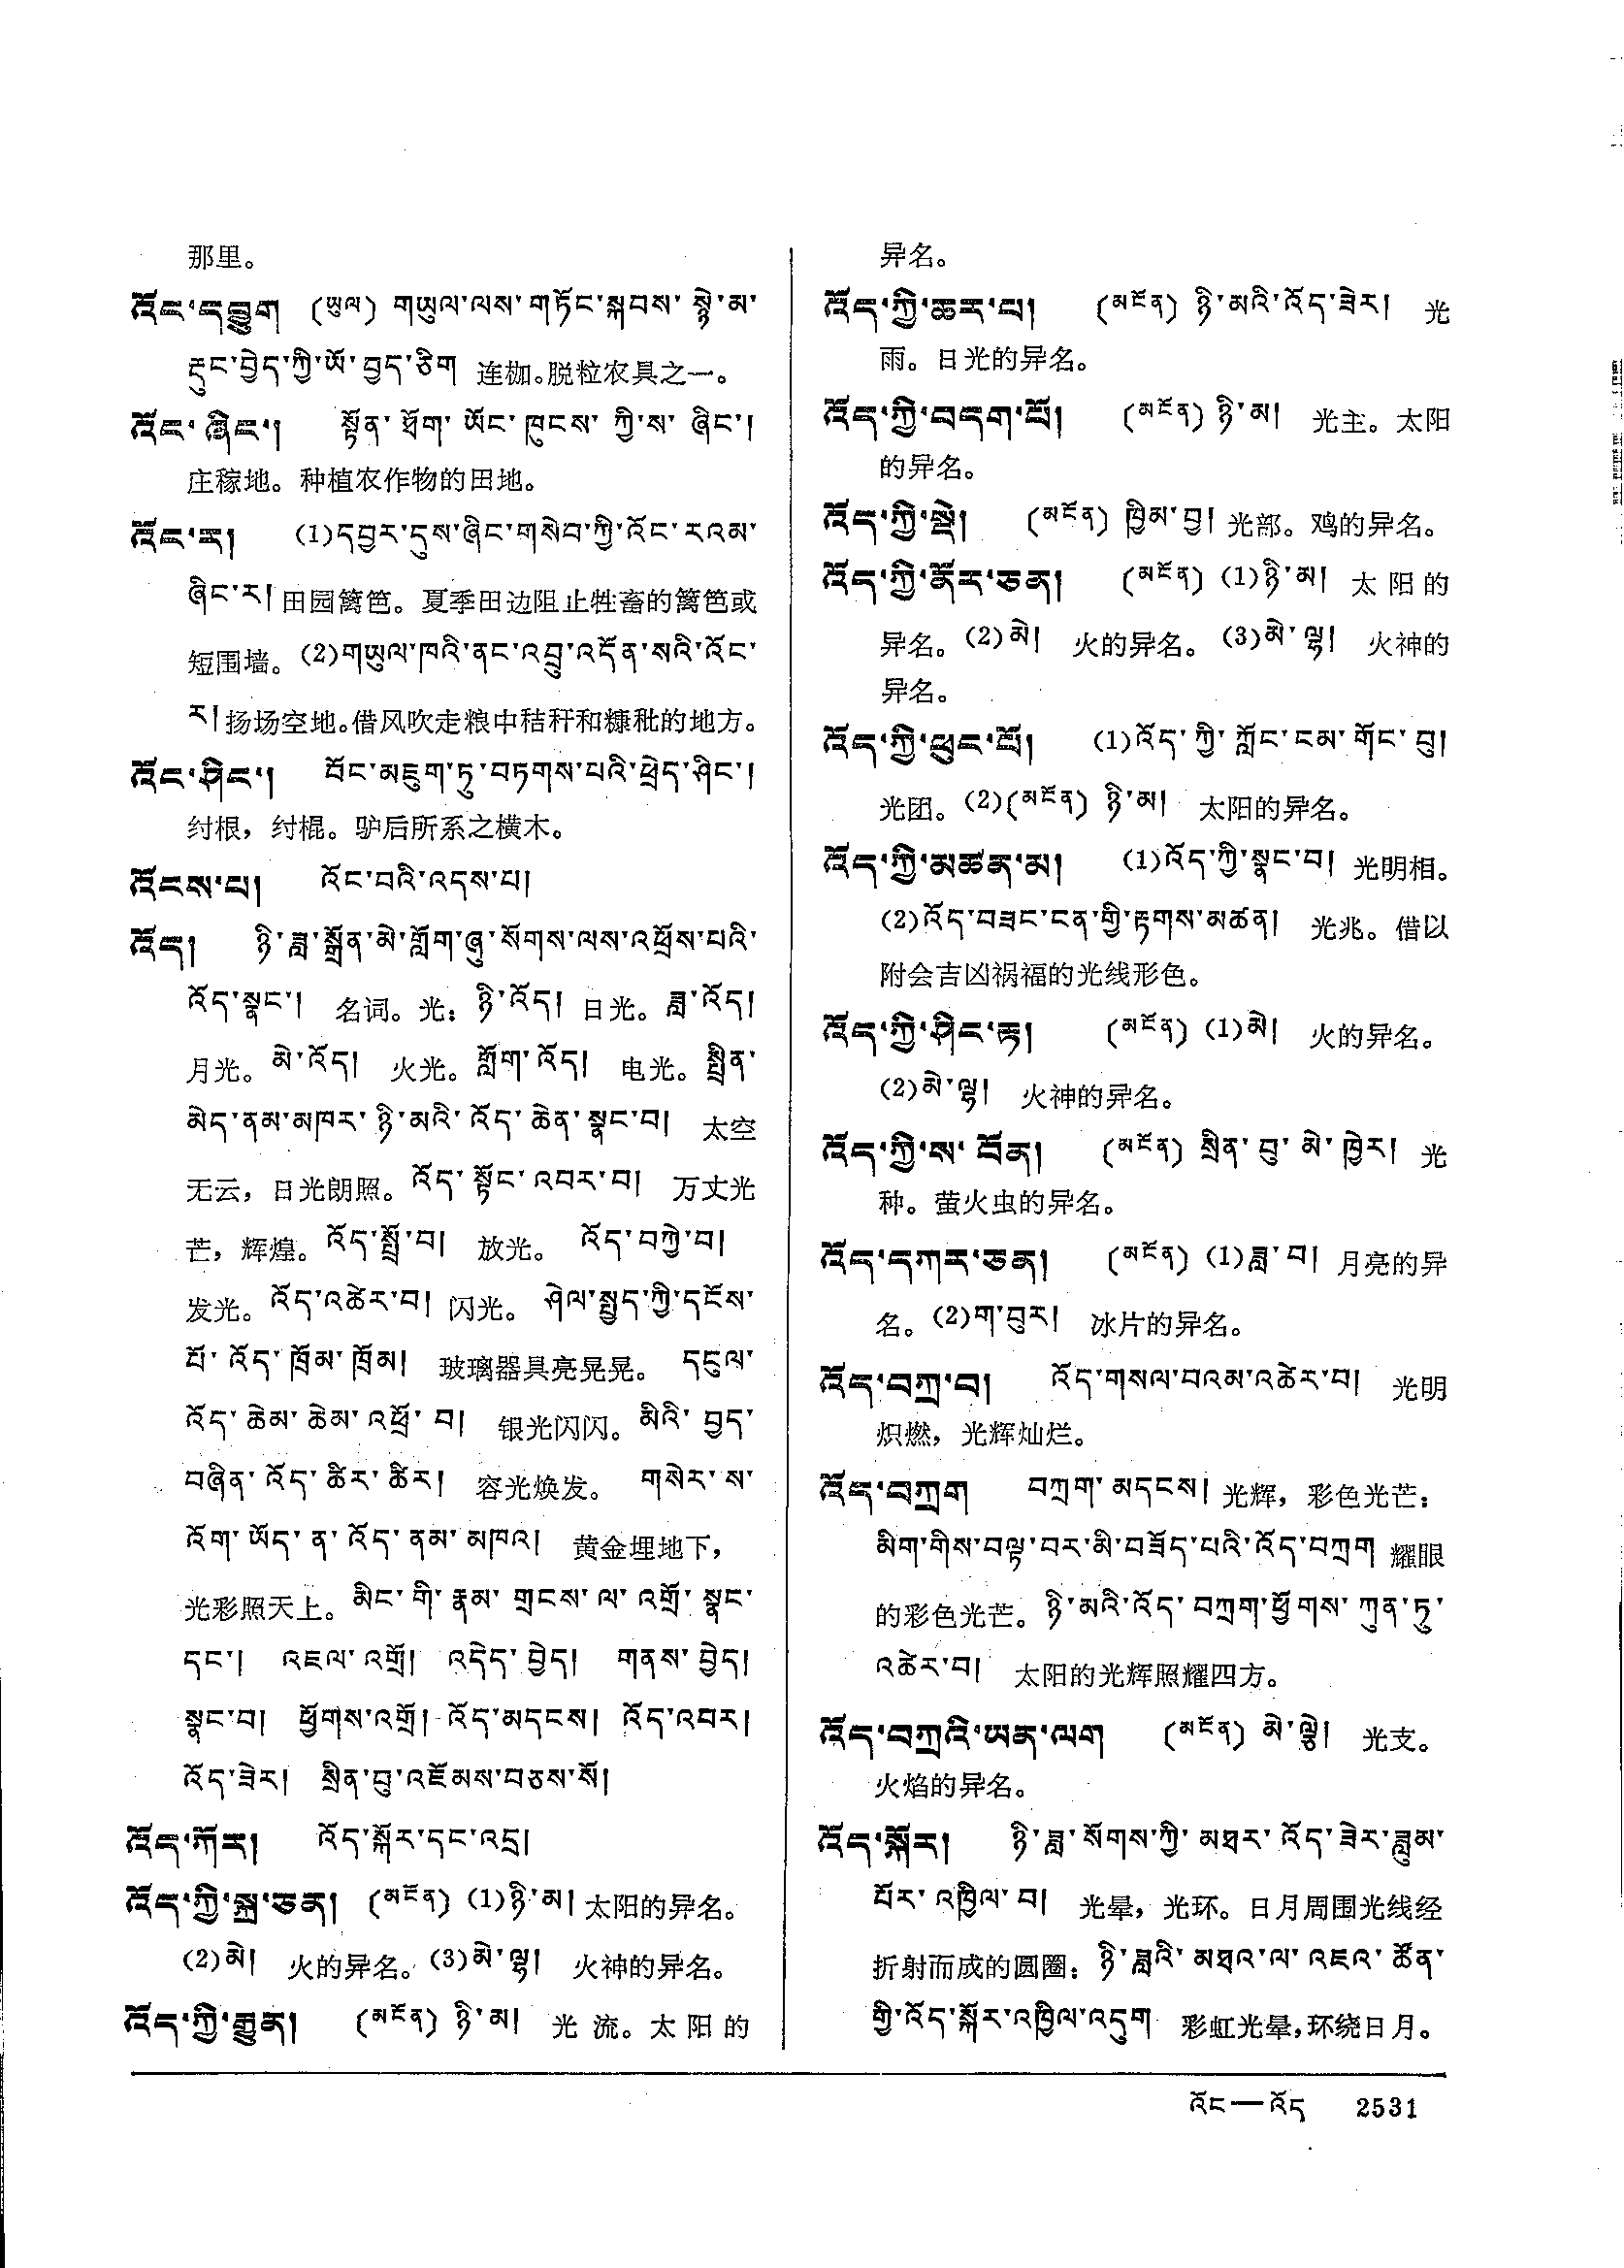 那里。
འོང་དབྱུག (ཡུལ) གཡུལ་ལས་གཏོང་སྐབས་ སྙེ་མ་
རྡུང་བྱེད་ཀྱི་ཡོ་བྱད་ཅིག 连枷。脱粒农具之一。
འོང་ཞིང་། སྟོན་ ཐོག་ ཡོང་ ཁུངས་ ཀྱི་ས་ ཞིང་།
庄稼地。种植农作物的田地。
འོང་ར། (1)དབྱར་དུས་ཞིང་གསེབ་ཀྱི་འོང་ རའམ་
ཞིང་ར། 田园篱笆。夏季田边阻止牲畜的篱笆或
短围墙。(2)གཡུལ་ཁའི་ནང་འབྲུ་འདོན་སའི་འོང་
ར། 扬场空地。借风吹走粮中秸秆和糠秕的地方。
འོང་ཤིང་། བོང་མཇུག་ཏུ་བཏགས་པའི་ཕྲེད་ཤིང་།
纣根，纣棍。驴后所系之横木。
འོངས་པ། འོང་བའི་འདས་པ།
འོད། ཉི་ཟླ་སྒྲོན་མེ་གློག་ཞུ་སོགས་ལས་འཕྲོས་པའི་
འོད་སྣང་། 名词。光：ཉི་འོད། 日光。ཟླ་འོད།
月光。མེ་འོད། 火光。གློག་འོད། 电光。སྤྲིན་
མེད་ནམ་མཁར་ ཉི་མའི་ འོད་ ཆེན་ སྣང་བ། 太空
无云，日光朗照。འོད་ སྟོང་ འབར་བ། 万丈光
芒，辉煌。འོད་སྤྲོ་བ། 放光。 འོད་བཀྱེ་བ།
发光。འོད་འཚེར་བ། 闪光。 ཤེལ་སྤྱད་ཀྱི་དངོས་
པོ་ འོད་ ཁྲོམ་ ཁྲོམ། 玻璃器具亮晃晃。 དངུལ་
འོད་ ཆེམ་ ཆེམ་ འཕྲོ་ བ། 银光闪闪。མིའི་ བྱད་
བཞིན་ འོད་ ཚིར་ ཚིར། 容光焕发。 གསེར་ ས་
འོག་ ཡོད་ ན་ འོད་ ནམ་ མཁའ། 黄金埋地下，
光彩照天上。མིང་ གི་ རྣམ་ གྲངས་ ལ་ འགྲོ་ སྣང་
དང་། འཇལ་ འགྲོ། འདེད་ བྱེད། གནས་ བྱེད།
སྣང་བ། ཕྱོགས་འགྲོ། འོད་མདངས། འོད་འབར།
འོད་ཟེར། སྲིན་བུ་འཇོམས་བཅས་སོ།
འོད་ཀོར། འོད་སྐོར་དང་འདྲ།
འོད་ཀྱི་སྐྲ་ཅན། (མངོན) (1)ཉི་མ། 太阳的异名。
(2)མེ། 火的异名。(3)མེ་ལྷ། 火神的异名。
འོད་ཀྱི་རྒྱུན། (མངོན) ཉི་མ། 光流。太阳的
异名。
འོད་ཀྱི་ཆར་པ། (མངོན) ཉི་མའི་འོད་ཟེར། 光
雨。日光的异名。
འོད་ཀྱི་བདག་པོ། (མངོན) ཉི་མ། 光主。太阳
的异名。
འོད་ཀྱི་སྡེ། (མངོན) ཁྱིམ་བྱ། 光部。鸡的异名。
འོད་ཀྱི་ནོར་ཅན། (མངོན) (1)ཉི་མ། 太阳的
异名。(2)མེ། 火的异名。(3)མེ་ལྷ། 火神的
异名。
འོད་ཀྱི་ཕུང་པོ། (1)འོད་ ཀྱི་ ཀློང་ངམ་ གོང་ བུ།
光团。(2)(མངོན) ཉི་མ། 太阳的异名。
འོད་ཀྱི་མཚན་མ། (1)འོད་ཀྱི་སྣང་བ། 光明相。
(2)འོད་བཟང་ངན་གྱི་རྟགས་མཚན། 光兆。借以
附会吉凶祸福的光线形色。
འོད་ཀྱི་ཤིང་རྟ། (མངོན) (1)མེ། 火的异名。
(2)མེ་ལྷ། 火神的异名。
འོད་ཀྱི་ས་བོན། (མངོན) སྲིན་ བུ་ མེ་ ཁྱེར། 光
种。萤火虫的异名。
འོད་དཀར་ཅན། (མངོན) (1)ཟླ་བ། 月亮的异
名。(2)ག་བུར། 冰片的异名。
འོད་བཀྲ་བ། འོད་གསལ་བའམ་འཚེར་བ། 光明
炽燃，光辉灿烂。
འོད་བཀྲག བཀྲག་ མདངས། 光辉，彩色光芒：
མིག་གིས་བལྟ་བར་མི་བཟོད་པའི་འོད་བཀྲག 耀眼
的彩色光芒。ཉི་མའི་འོད་ བཀྲག་ཕྱོགས་ ཀུན་ཏུ་
འཚེར་བ། 太阳的光辉照耀四方。
འོད་བཀྲའི་ཡན་ལག (མངོན) མེ་ལྕེ། 光支。
火焰的异名。
འོད་སྐོར། ཉི་ཟླ་ སོགས་ཀྱི་ མཐར་ འོད་ ཟེར་ཟླུམ་
པོར་ འཁྱིལ་བ། 光晕，光环。日月周围光线经
折射而成的圆圈：ཉི་ཟླའི་ མཐའ་ལ་ འཇའ་ ཚོན་
གྱི་འོད་སྐོར་འཁྱིལ་འདུག 彩虹光晕，环绕日月。
འོང—འོད 2531